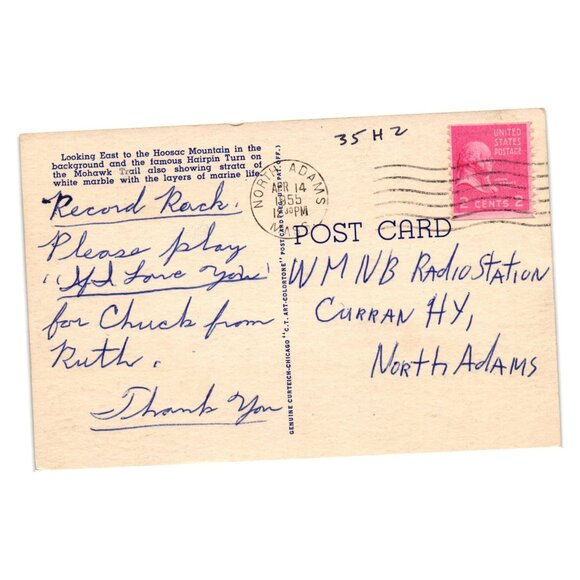 Looking East to the Hoosac Mountain in the
background and the famous Hairpin Turn on
the Mohawk Trail also showing strata of
white marble with the layers of marine life.
Record Rack.
Please play
"If I Love You"
for Chuck from
Ruth.
Thank You
GENUINE CURTEICH-CHICAGO "C.T. ART-COLORTONE" POST CARD (REG. U.S. PAT. OFF.)
35H2
NORTH ADAMS
APR 14
1955
12 30 PM
MASS
UNITED
STATES
POSTAGE
2 CENTS 2
POST CARD
WMNB RADIO STATION
CURRAN HY,
NORTH ADAMS